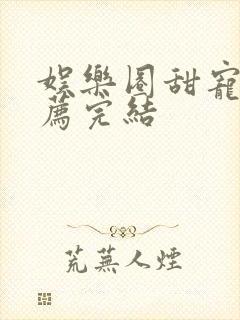 娛樂圈甜寵
薦完結
荒蕪人煙